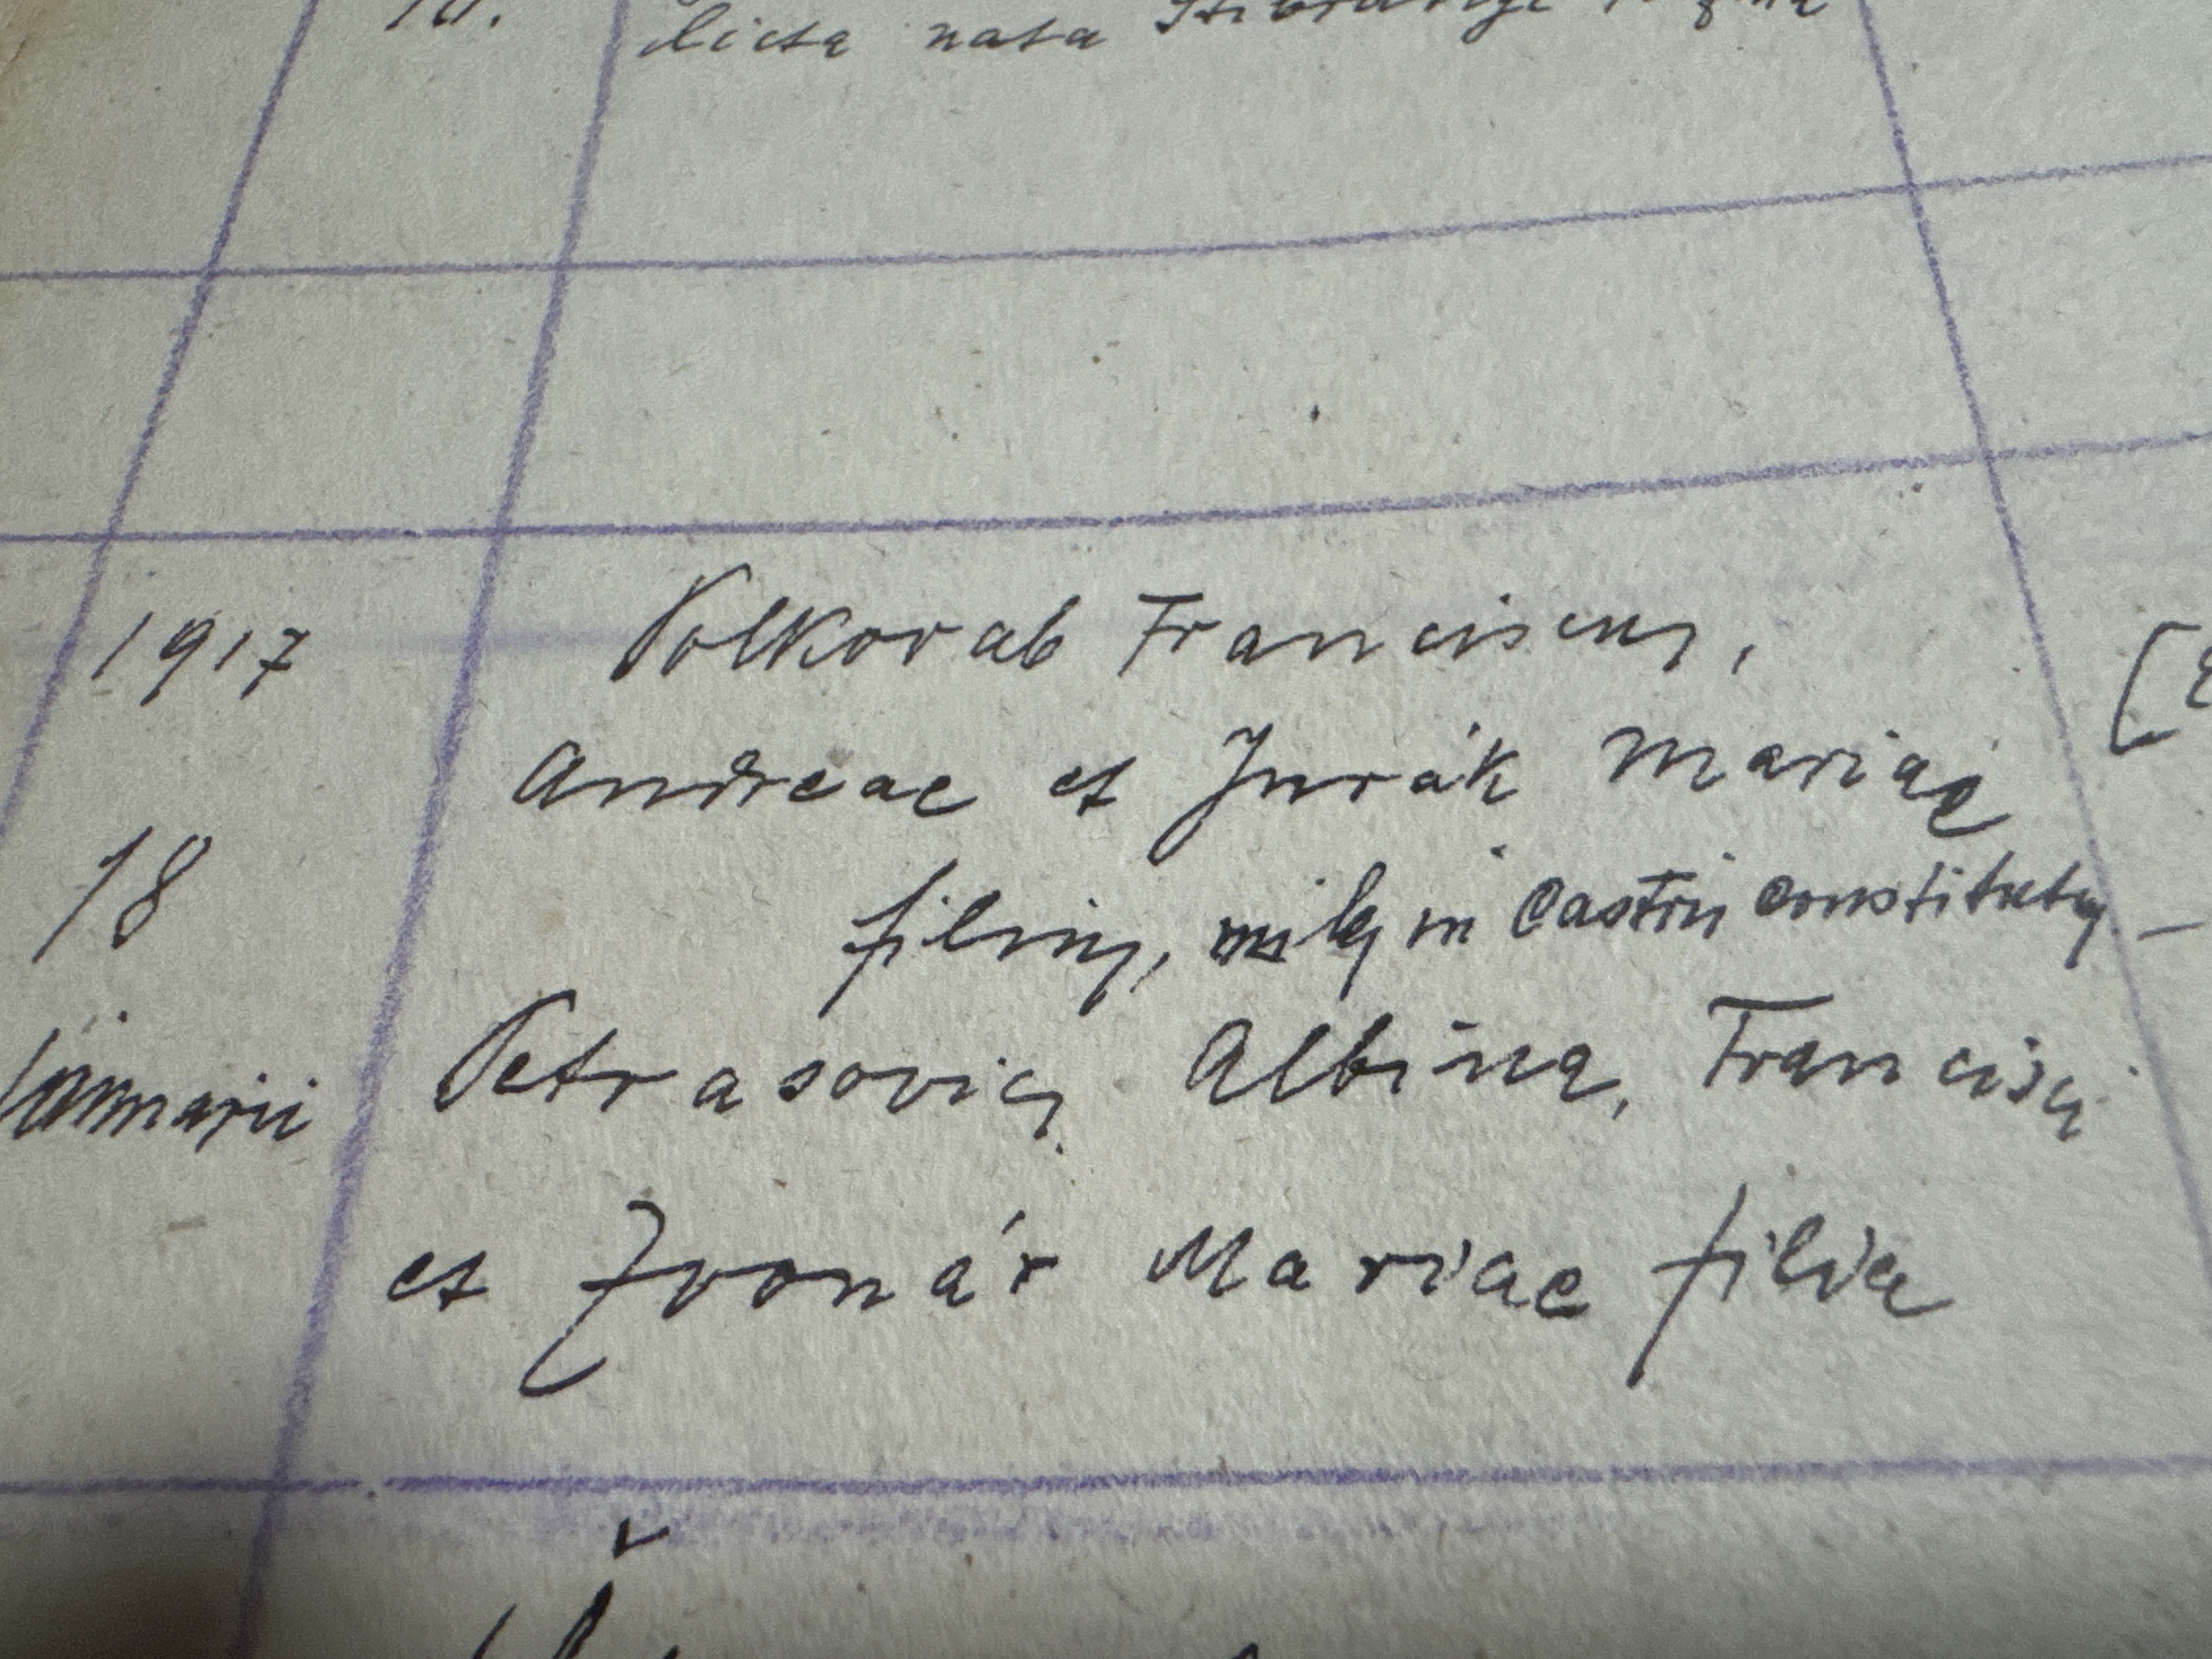 licta nata
1917 Polkorab Franciscus,
Andreae et Jurák Mariae
18 filius, miles in Castris constitutus –
Januarii Petrasovics Albina, Francisci
et Zvonár Mariae filia